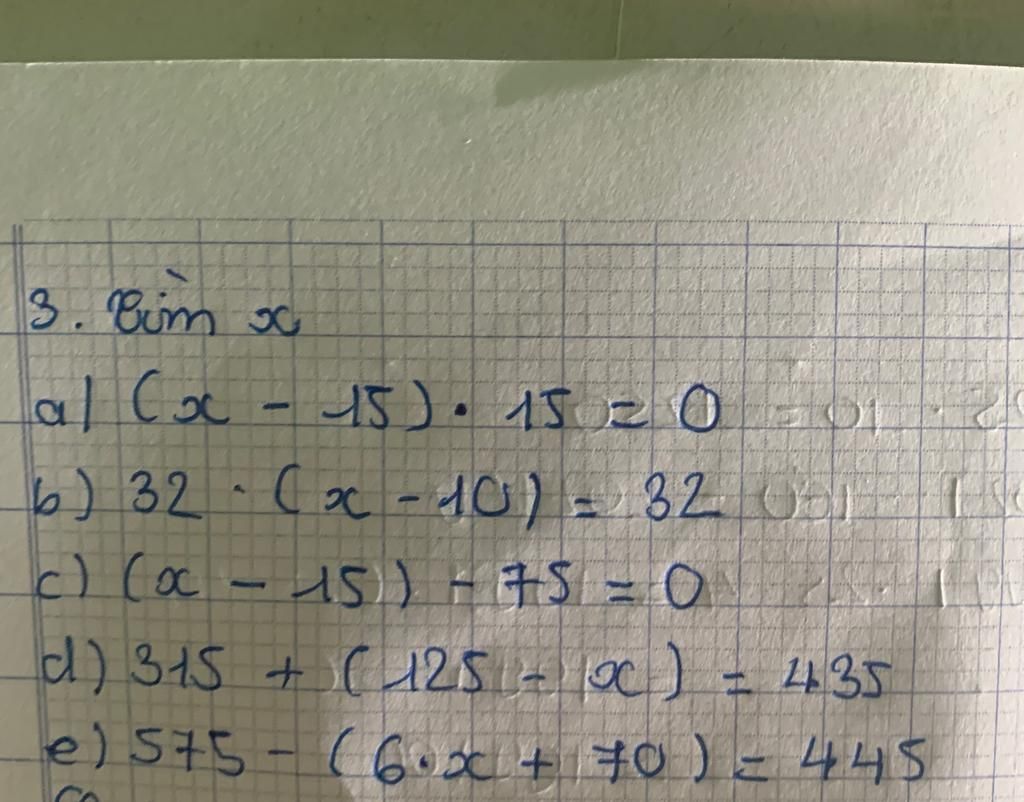 3. Tìm x
a) (x - 15) . 15 = 0
b) 32 . (x - 10) = 32
c) (x - 15) - 75 = 0
d) 315 + (125 - x) = 435
e) 575 - (6.x + 70) = 445